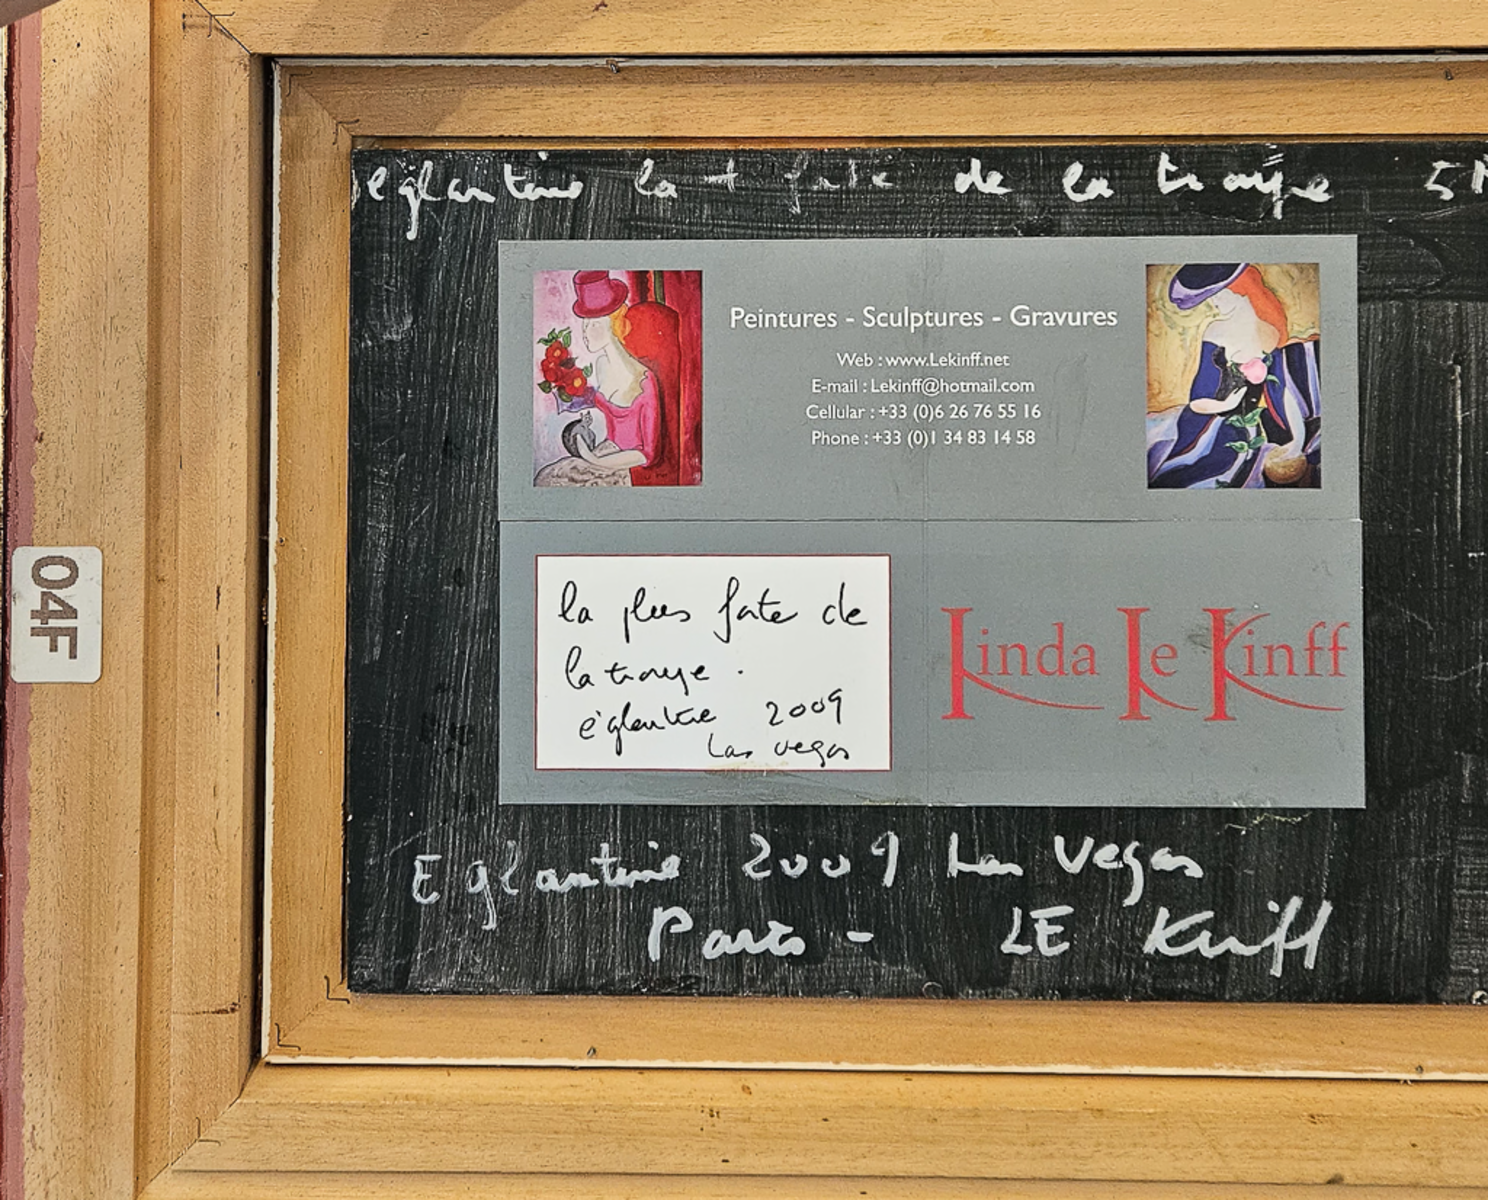 églantine la + fate de la troupe 5
Peintures - Sculptures - Gravures
Web : www.Lekinff.net
E-mail : Lekinff@hotmail.com
Cellular : +33 (0)6 26 76 55 16
Phone : +33 (0)1 34 83 14 58
la plus fate de
la troupe.
églantine 2009
Las vegas
Linda Le Kinff
Eglantine 2009 Las Vegas
Paris - LE Kinff
04F